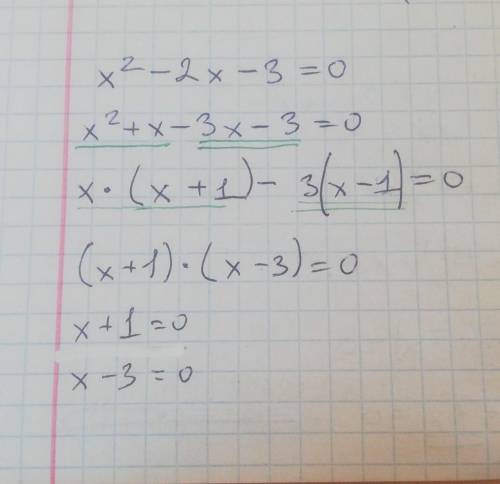 x² - 2x - 3 = 0
x² + x - 3x - 3 = 0
x · (x + 1) - 3(x - 1) = 0
(x + 1) · (x - 3) = 0
x + 1 = 0
x - 3 = 0